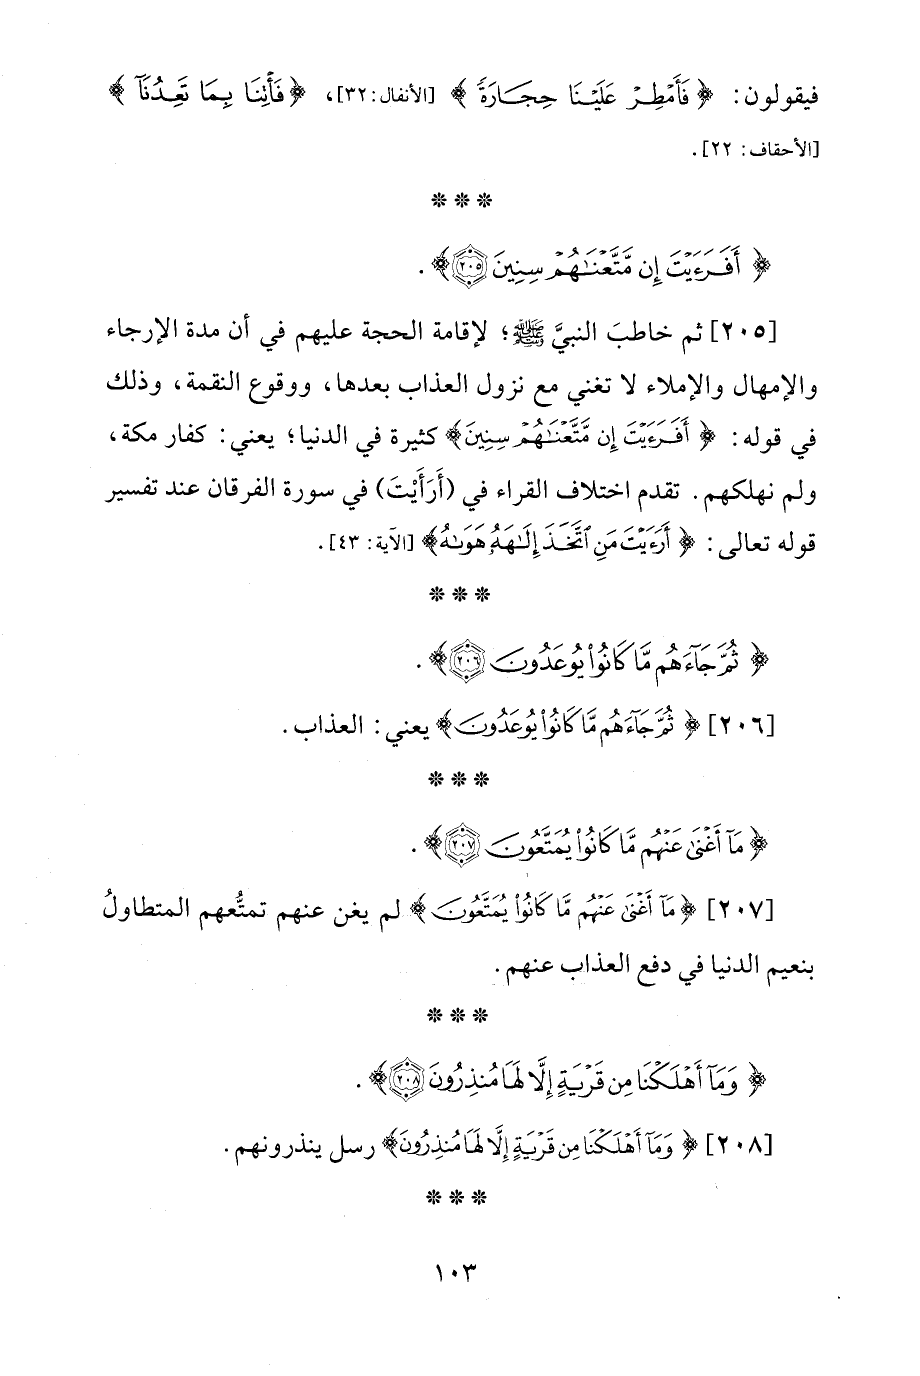 فيقولون: ﴿فَأَمْطِرْ عَلَيْنَا حِجَارَةً﴾ [الأنفال: ٣٢]، ﴿فَأْتِنَا بِمَا تَعِدُنَآ﴾
[الأحقاف: ٢٢].
* * *
﴿أَفَرَءَيْتَ إِن مَّتَّعْنَٰهُمْ سِنِينَ ٢٠٥﴾.
[٢٠٥] ثم خاطبَ النبيَّ ﷺ؛ لإقامة الحجة عليهم في أن مدة الإرجاء
والإمهال والإملاء لا تغني مع نزول العذاب بعدها، ووقوع النقمة، وذلك
في قوله: ﴿أَفَرَءَيْتَ إِن مَّتَّعْنَٰهُمْ سِنِينَ﴾ كثيرة في الدنيا؛ يعني: كفار مكة،
ولم نهلكهم. تقدم اختلاف القراء في (أَرَأَيْتَ) في سورة الفرقان عند تفسير
قوله تعالى: ﴿أَرَءَيْتَ مَنِ ٱتَّخَذَ إِلَٰهَهُۥ هَوَىٰهُ﴾ [الآية: ٤٣].
* * *
﴿ثُمَّ جَآءَهُم مَّا كَانُوا۟ يُوعَدُونَ ٢٠٦﴾.
[٢٠٦] ﴿ثُمَّ جَآءَهُم مَّا كَانُوا۟ يُوعَدُونَ﴾ يعني: العذاب.
* * *
﴿مَآ أَغْنَىٰ عَنْهُم مَّا كَانُوا۟ يُمَتَّعُونَ ٢٠٧﴾.
[٢٠٧] ﴿مَآ أَغْنَىٰ عَنْهُم مَّا كَانُوا۟ يُمَتَّعُونَ﴾ لم يغن عنهم تمتُّعهم المتطاولُ
بنعيم الدنيا في دفع العذاب عنهم.
* * *
﴿وَمَآ أَهْلَكْنَا مِن قَرْيَةٍ إِلَّا لَهَا مُنذِرُونَ ٢٠٨﴾.
[٢٠٨] ﴿وَمَآ أَهْلَكْنَا مِن قَرْيَةٍ إِلَّا لَهَا مُنذِرُونَ﴾ رسل ينذرونهم.
* * *
١٠٣